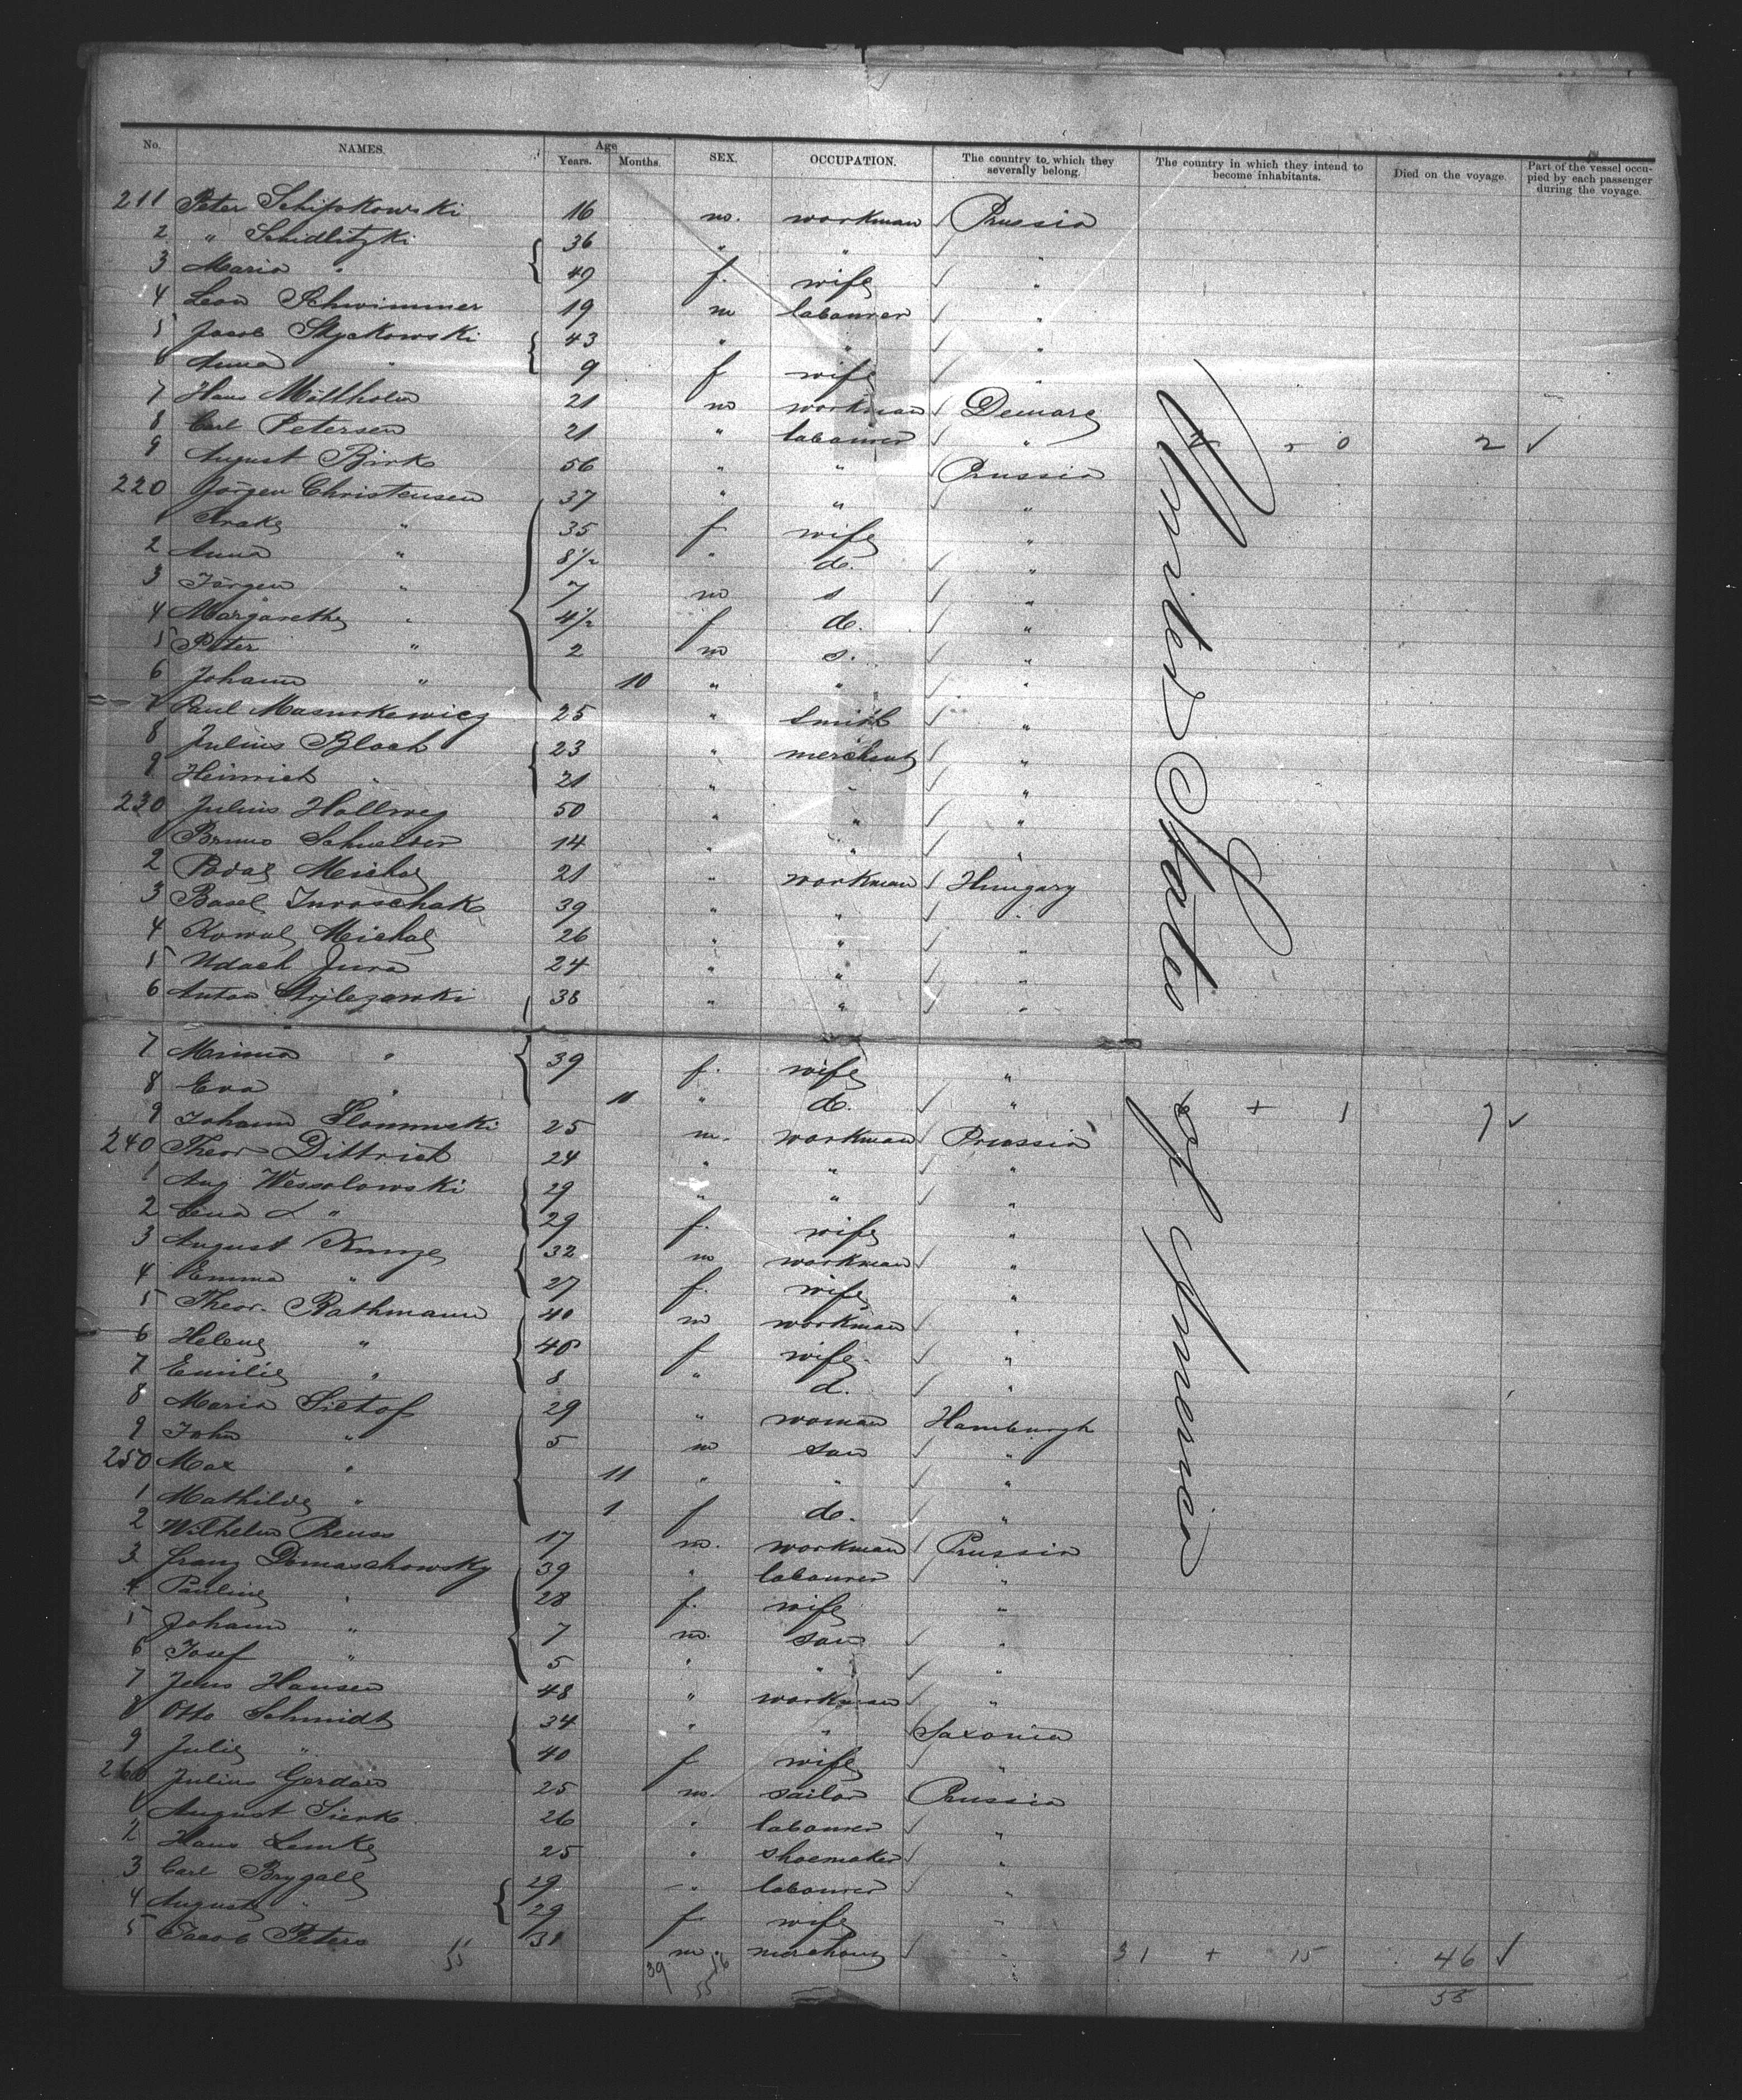 No. NAMES. Age Years. Months. SEX. OCCUPATION. The country to which they severally belong. The country in which they intend to become inhabitants. Died on the voyage. Part of the vessel occupied by each passenger during the voyage.
211 Peter Schipkowski 16 m. workman ✓ Prussia
2 " Schidlitzki 36 " " ✓ "
3 Maria " 49 f. wife ✓ "
4 Leon Schwimmer 19 m labourer ✓ "
5 Jacob Styckowski 43 " " ✓ "
6 Anna " 9 f wife ✓ "
7 Hans Möllholm 21 m workman ✓ Demarc
8 Carl Petersen 21 " labourer ✓ " 2 – 0 2 ✓
9 August Birk 56 " " Prussia
220 Jörgen Christensen 37 " " ✓ "
1 " 35 f wife "
2 Anna " 8½ " d. ✓ "
3 Jörgen " 7 m s ✓ "
4 Margarethe " 4½ f d. ✓ "
5 Peter " 2 m s. ✓ "
6 Johann " 10 " " ✓ "
7 Paul Masurkewicz 25 " Smith ✓ "
8 Julius Bloch 23 " merchant ✓ "
9 Heinrich " 21 " " ✓ "
230 Julius Hollweg 50 " " ✓ "
1 Bruno Schuelder 14 " " ✓ "
2 Michal 21 " workman ✓ Hungary
3 Basel Juroschak 39 " " ✓ "
4 Kowal Michal 26 " " ✓ "
5 Udach Jura 24 " " ✓ "
6 Anton 38 " " ✓ "
7 " 39 f. wife "
8 Eva " 11 " d. ✓ " + 1 ✓
9 Johann Slomski 25 m. workman ✓ Prussia
240 Theor Dittrich 24 " " ✓ "
1 Aug Wessolowski 29 " " ✓ "
2 " 29 f. wife "
3 August Kunze 32 m workman ✓ "
4 Emma " 27 f. wife "
5 Theor. Rathmann 40 m workman ✓ "
6 Helene " 40 f wife ✓ "
7 Emilie " 8 " d. ✓ "
8 Maria Siethof 29 " woman Hamburgh
9 John " 5 m son ✓ "
250 Max " 11 " " ✓ "
1 Mathilde " 1 f d. ✓ "
2 Wilhelm Preuss 17 m. workman ✓ Prussia
3 Franz Domaschowsky 39 " labourer ✓ "
4 Pauline " 28 f. wife "
5 Johann " 7 m. son ✓ "
6 Josef " 5 " " ✓ "
7 Jens Hansen 48 " workman ✓ "
8 Otto Schmidt 34 " " ✓ Saxonia
9 Julie " 40 f wife ✓ "
260 Julius Gerdau 25 m. sailor Prussia
1 August Sierk 26 " labourer ✓ "
2 Hans Lemke 25 " shoemaker ✓ "
3 Carl Brygall 29 " labourer ✓ "
4 Auguste " 29 f wife "
5 Jacob Peters 31 m. merchant ✓ " 31 + 15 46 ✓
55 39 16 55 55
United States of America